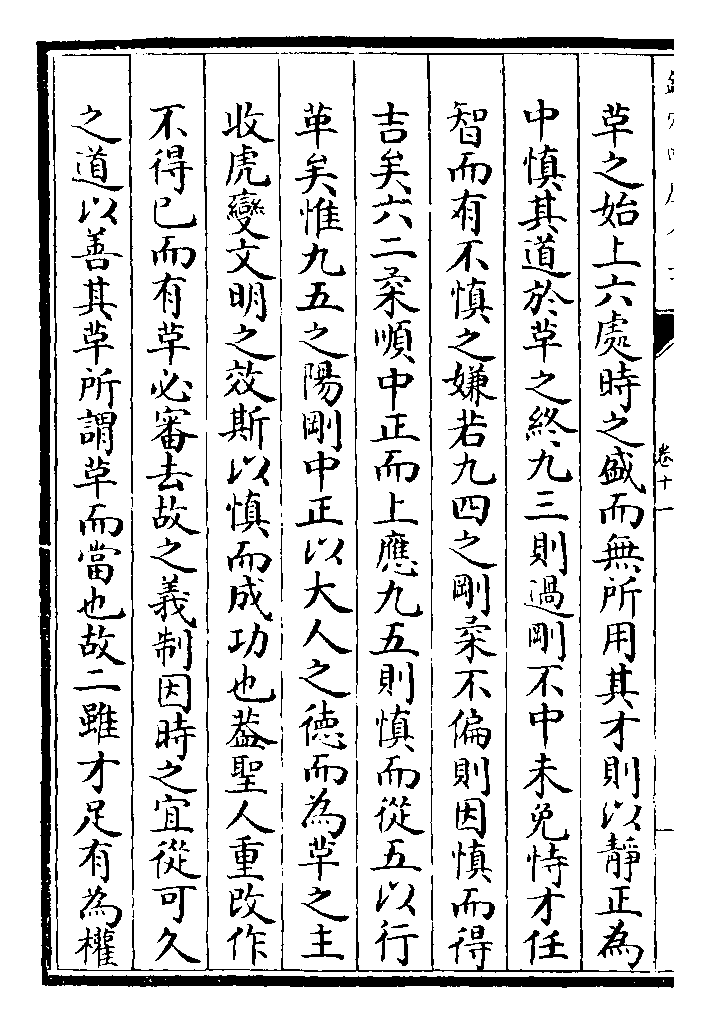 革之始上六處時之盛而無所用其才則以靜正為
中慎其道於革之終九三則過剛不中未免恃才任
智而有不慎之嫌若九四之剛柔不偏則因慎而得
吉矣六二柔順中正而上應九五則慎而從五以行
革矣惟九五之陽剛中正以大人之德而為革之主
收虎變文明之效斯以慎而成功也葢聖人重改作
不得已而有革必審去故之義制因時之宜從可久
之道以善其革所謂革而當也故二雖才足有為權
卷十一